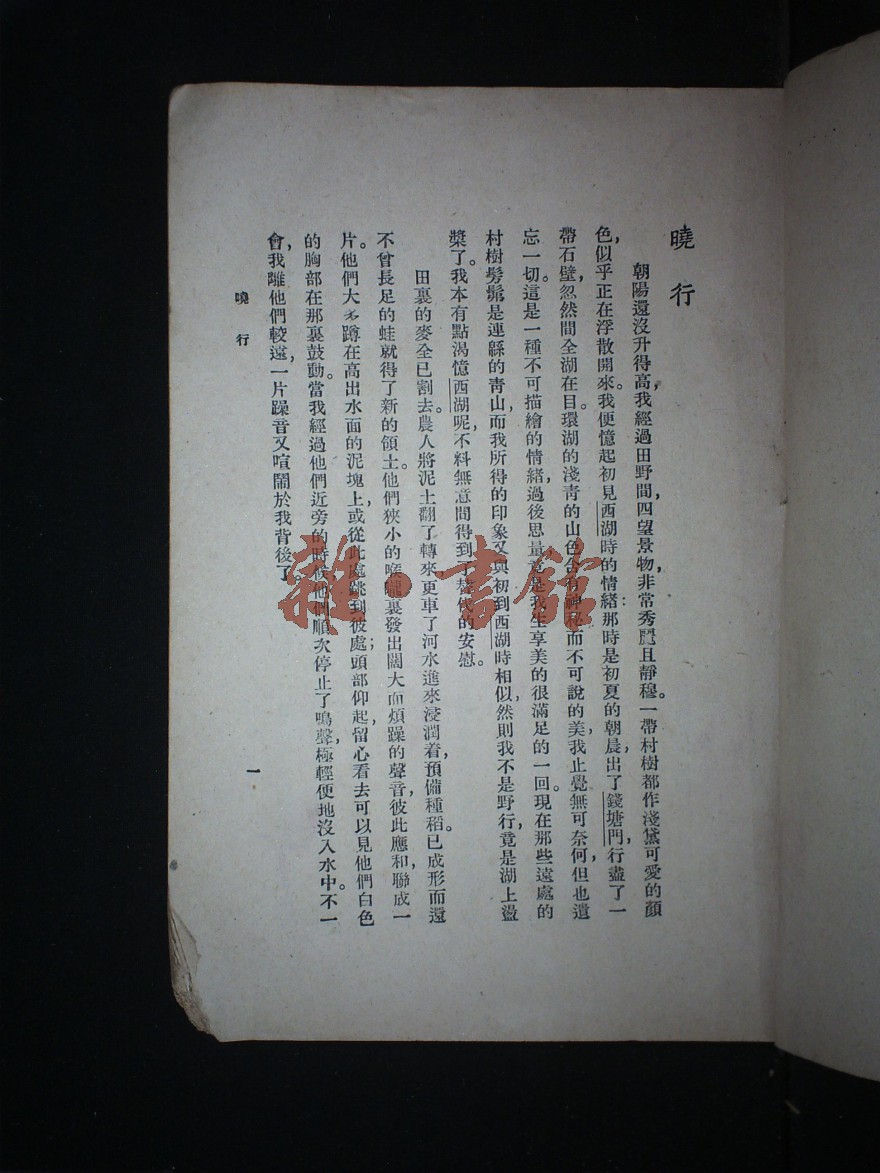 曉行
朝陽還沒升得高，我經過田野間，四望景物，非常秀麗且靜穆。一帶村樹都作淺黛可愛的顏
色，似乎正在浮散開來。我便憶起初見西湖時的情緒：那時是初夏的朝晨，出了錢塘門，行盡了一
帶石壁，忽然間全湖在目。環湖的淺青的山色含有神秘而不可說的美，我止覺無可奈何，但也遺
忘一切。這是一種不可描繪的情緒，過後思量，竟是我生享美的很滿足的一回。現在那些遠處的
村樹髣髴是連緜的青山，而我所得的印象又與初到西湖時相似，然則我不是野行，竟是湖上盪
槳了。我本有點渴憶西湖呢，不料無意間得到了替代的安慰。
田裏的麥全已割去。農人將泥土翻了轉來，更車了河水進來浸潤着，預備種稻。已成形而還
不曾長足的蛙就得了新的領土。他們狹小的喉嚨裏發出闊大而煩躁的聲音，彼此應和，聯成一
片。他們大多蹲在高出水面的泥塊上，或從此處跳到彼處；頭部仰起，留心看去可以見他們白色
的胸部在那裏鼓動。當我經過他們近旁的時候，他們順次停止了鳴聲，極輕便地沒入水中。不一
會，我離他們較遠，一片躁音又喧鬧於我背後了。
曉行
一
雜·書館